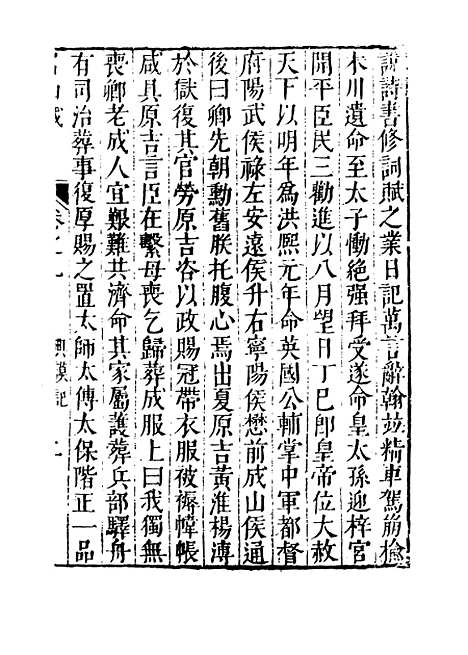 誦詩書修詞賦之業日記萬言辭翰茲精車駕崩榆
木川遺命至太子慟絕强拜受遂命皇太孫迎梓宮
開平臣民三勸進以八月望日丁巳卽皇帝位大赦
天下以明年為洪熙元年命英國公輔掌中軍都督
府陽武侯祿左安遠侯升右寧陽侯懋前成山侯通
後曰卿先朝勳舊朕托腹心焉出夏原吉黃淮楊溥
於獄復其官勞原吉咨以政賜冠帶衣服被褥幃帳
咸具原吉言臣在繫母喪乞歸葬成服上曰我獨無
喪卿老成人宜艱難共濟命其家屬護葬兵部驛舟
有司治葬事復厚賜之置太師太傅太保階正一品
名山藏 卷之九 典謨記 二